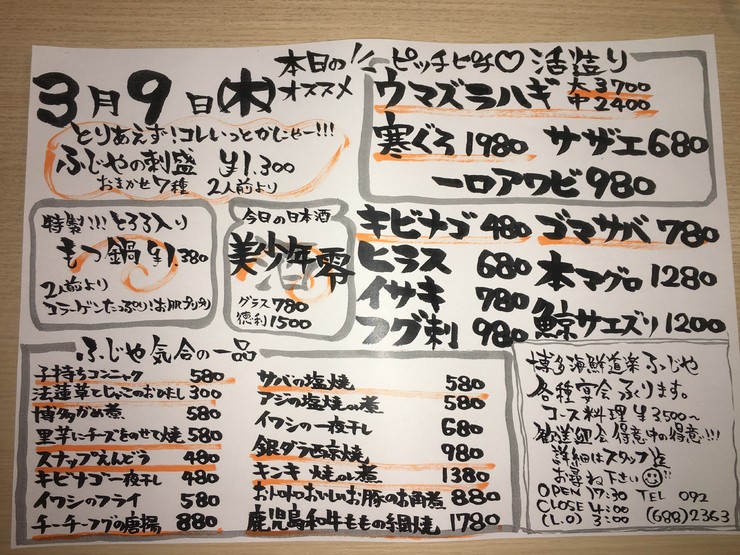 3月9日(木)
本日の
オススメ
とりあえず!コレいっとかにゃー!!!
ふじやの刺盛 ¥1,300
おまかせ7種 2人前より
ピッチピチ♡活造り
ウマズラハギ 大3700
中2400
寒ぐろ1980 サザエ680
一口アワビ980
特製!!!とろろ入り
もつ鍋¥1,380
2人前より
コラーゲンたっぷり!お肌プリプリ
今日の日本酒
美少年零
グラス780
徳利1500
キビナゴ480 ゴマサバ780
ヒラス680 本マグロ1280
イサキ780
フグ刺980 鯨サエズリ1200
ふじや気合の一品
子持ちコンニャク580
法蓮草とじゃこのおひたし300
博多がめ煮580
里芋にチーズをのせて焼580
スナップえんどう480
キビナゴ一夜干し480
イワシのフライ580
チーチーフブの唐揚880
サバの塩焼580
アジの塩焼or煮580
イワシの一夜干し680
銀ダラ西京焼980
キンキ 焼or煮1380
おトロトロおいしいお豚のお角煮880
鹿児島和牛ももの網焼1780
博多海鮮道楽ふじや
各種宴会承ります。
コース料理¥3500〜
歓送迎会得意中の得意!!!
詳細はスタッフ迄
お尋ね下さい!!
OPEN 17:30 TEL 092
CLOSE 4:00 (688)2363
(L.O) 3:00